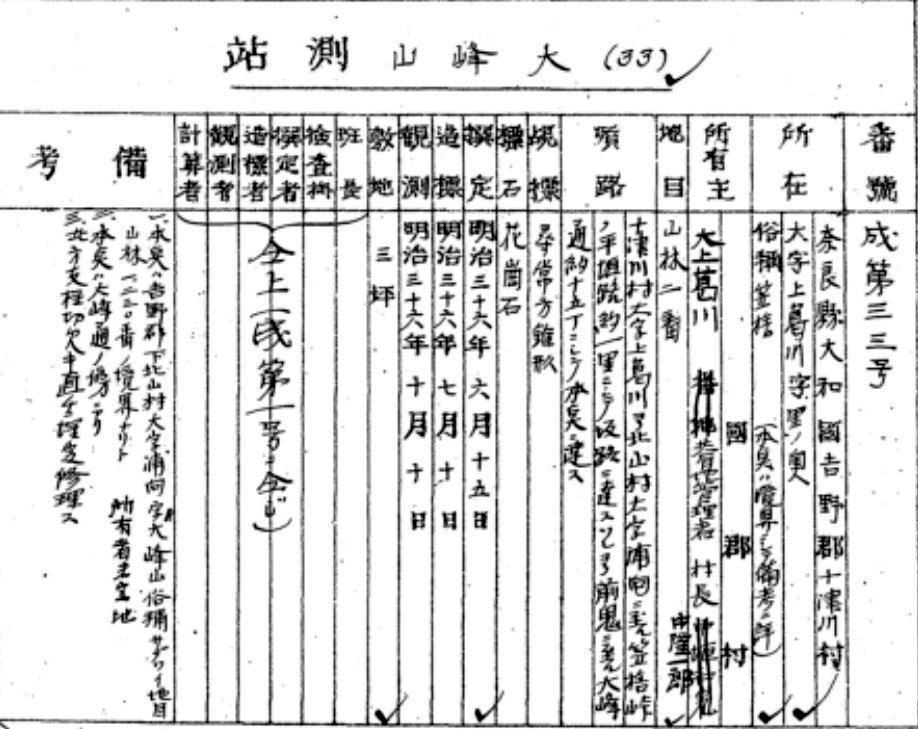 (33) 大峰山測站
番號
成第三三号
所在
奈良縣大和國吉野郡十津川村
大字上葛川字里ノ奥
俗稱笠捨
(本点ハ覺界ニシテ備考ニ詳)
所有主
國 郡 村
大上葛川 管理者 村長
中隆一郎
地目
山林二番
順路
十津川村大字上葛川ヨリ北山村大字浦向ニ至ル笠捨峠
ノ平坦路約一里ニシテ坂路ニ達ス之ヨリ前鬼ニ至ル大峰
通約十五丁ニシテ本点ニ達ス
覘標
尋常方錐形
標石
花崗石
撰定
明治三十六年 六月十五日
造標
明治三十六年 七月十 日
觀測
明治三十六年 十月十 日
敷地
三坪
班長
檢査掛
撰定者
造標者
觀測者
計算者
仝上(成第一号ニ仝じ)
備考
一、本点ハ吉野郡下北山村大字浦向字大峰山俗稱 地目
山林一二二〇番ノ境界ナリト 所有者
二、本点ハ大峰通ノ傍ニアリ